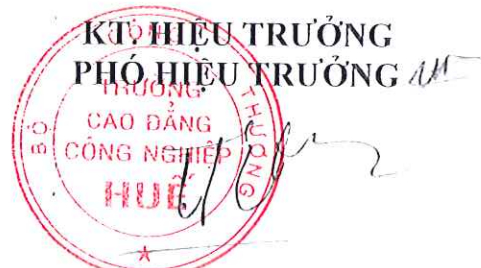 KT. HIỆU TRƯỞNG
PHÓ HIỆU TRƯỞNG
BỘ CÔNG THƯƠNG
TRƯỜNG
CAO ĐẲNG
CÔNG NGHIỆP
HUẾ